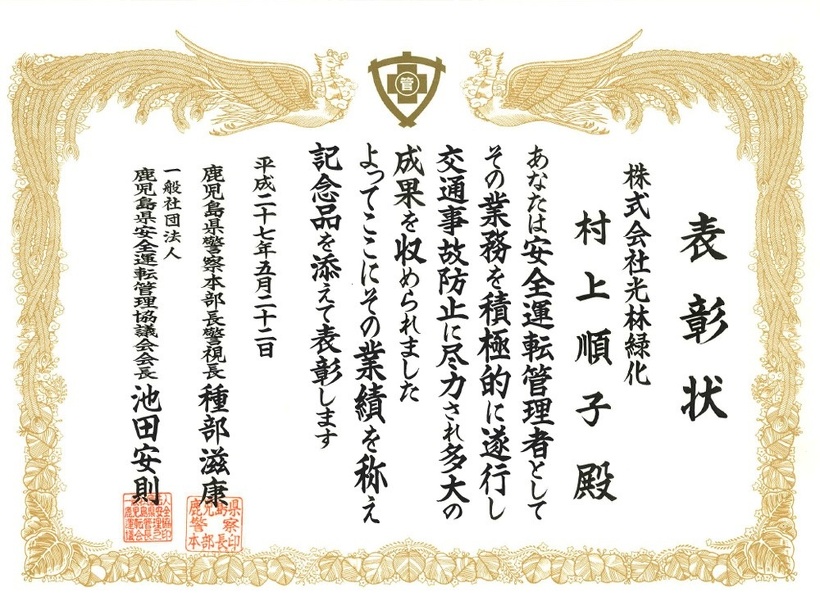 管
表彰状
株式会社光林緑化
村上順子殿
あなたは安全運転管理者として
その業務を積極的に遂行し
交通事故防止に尽力され多大の
成果を収められました
よってここにその業績を称え
記念品を添えて表彰します
平成二十七年五月二十二日
鹿児島県警察本部長警視長 種部滋康
鹿児島県警察本部長印
一般社団法人
鹿児島県安全運転管理協議会会長 池田安則